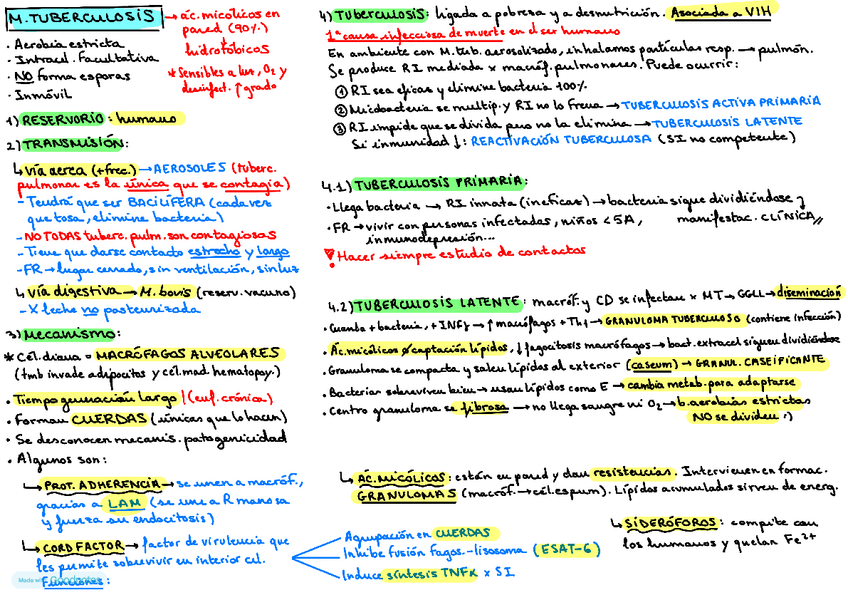 M. TUBERCULOSIS → ác. micólicos en
pared (90%)
hidrofóbicos
* Sensibles a luz, O2 y
desinfect. ↑ grado
· Aerobia estricta
· Intracel. Facultativa
· NO forma esporas
· Inmóvil
1) RESERVORIO: humano
2) TRANSMISIÓN:
↳ Vía aerea (+frec.) → AEROSOLES (tuberc.
pulmonar es la única que se contagia)
- Tendrá que ser BACILÍFERA (cada vez
que tosa, elimine bacteria)
- NO TODAS tuberc. pulm. son contagiosas
- Tiene que darse contacto estrecho y largo
- FR → lugar cerrado, sin ventilación, sin luz
↳ Vía digestiva → M. bovis (reserv. vacuno)
- X leche no pasteurizada
3) Mecanismo:
* Cél. diana = MACRÓFAGOS ALVEOLARES
(tmb invade adipocitos y cél. mad. hematopoy.)
· Tiempo generación largo! (enf. crónica)
· Forman CUERDAS (únicas que lo hacen)
· Se desconocen mecanis. patogenicidad
· Algunos son:
↳ PROT. ADHERENCIA → se unen a macróf.,
gracias a LAM (se une a R manosa
y fuerza su endocitosis)
↳ CORD FACTOR → factor de virulencia que
les permite sobrevivir en interior cel.
Funciones:
Agrupación en CUERDAS
Inhibe fusión fagos.-lisosoma (ESAT-6)
Induce síntesis TNFα x SI
4) TUBERCULOSIS: ligada a pobreza y a desnutrición. Asociada a VIH
1ª causa infecciosa de muerte en el ser humano
En ambiente con M. tub. aerosolizado, inhalamos partículas resp. → pulmón.
Se produce RI mediada x macróf. pulmonares. Puede ocurrir:
① RI sea eficaz y elimine bacteria 100%
② Micobacteria se multip. y RI no lo frena → TUBERCULOSIS ACTIVA PRIMARIA
③ RI impide que se divida pero no la elimina → TUBERCULOSIS LATENTE
Si inmunidad ↓: REACTIVACIÓN TUBERCULOSA (SI no competente)
4.1) TUBERCULOSIS PRIMARIA:
· Llega bacteria → RI innata (ineficaz) → bacteria sigue dividiéndose y
manifestac. CLÍNICA
· FR → vivir con personas infectadas, niños < 5A,
inmunodepresión...
Hacer siempre estudio de contactos
4.2) TUBERCULOSIS LATENTE: macróf. y CD se infectan x MT → GGLL → diseminación
· Cuanta + bacteria, + INFγ → ↑ macrófagos + Th1 → GRANULOMA TUBERCULOSO (contiene infección)
· Ác. micólicos captación lípidos, ↓ fagocitosis macrófagos → bact. extracel siguen dividiéndose
· Granuloma se compacta y salen lípidos al exterior (caseum) → GRANUL. CASEIFICANTE
· Bacterias sobreviven bien → usan lípidos como E → cambia metab. para adaptarse
· Centro granuloma se fibrosa → no llega sangre ni O2 → b. aerobias estrictas
NO se dividen :)
↳ ÁC. MICÓLICOS: están en pared y dan resistencias. Intervienen en formac.
GRANULOMAS (macróf. → cél. espum). Lípidos acumulados sirven de energ.
↳ SIDERÓFOROS: compite con
los humanos y quelan Fe2+
Made with Goodnotes